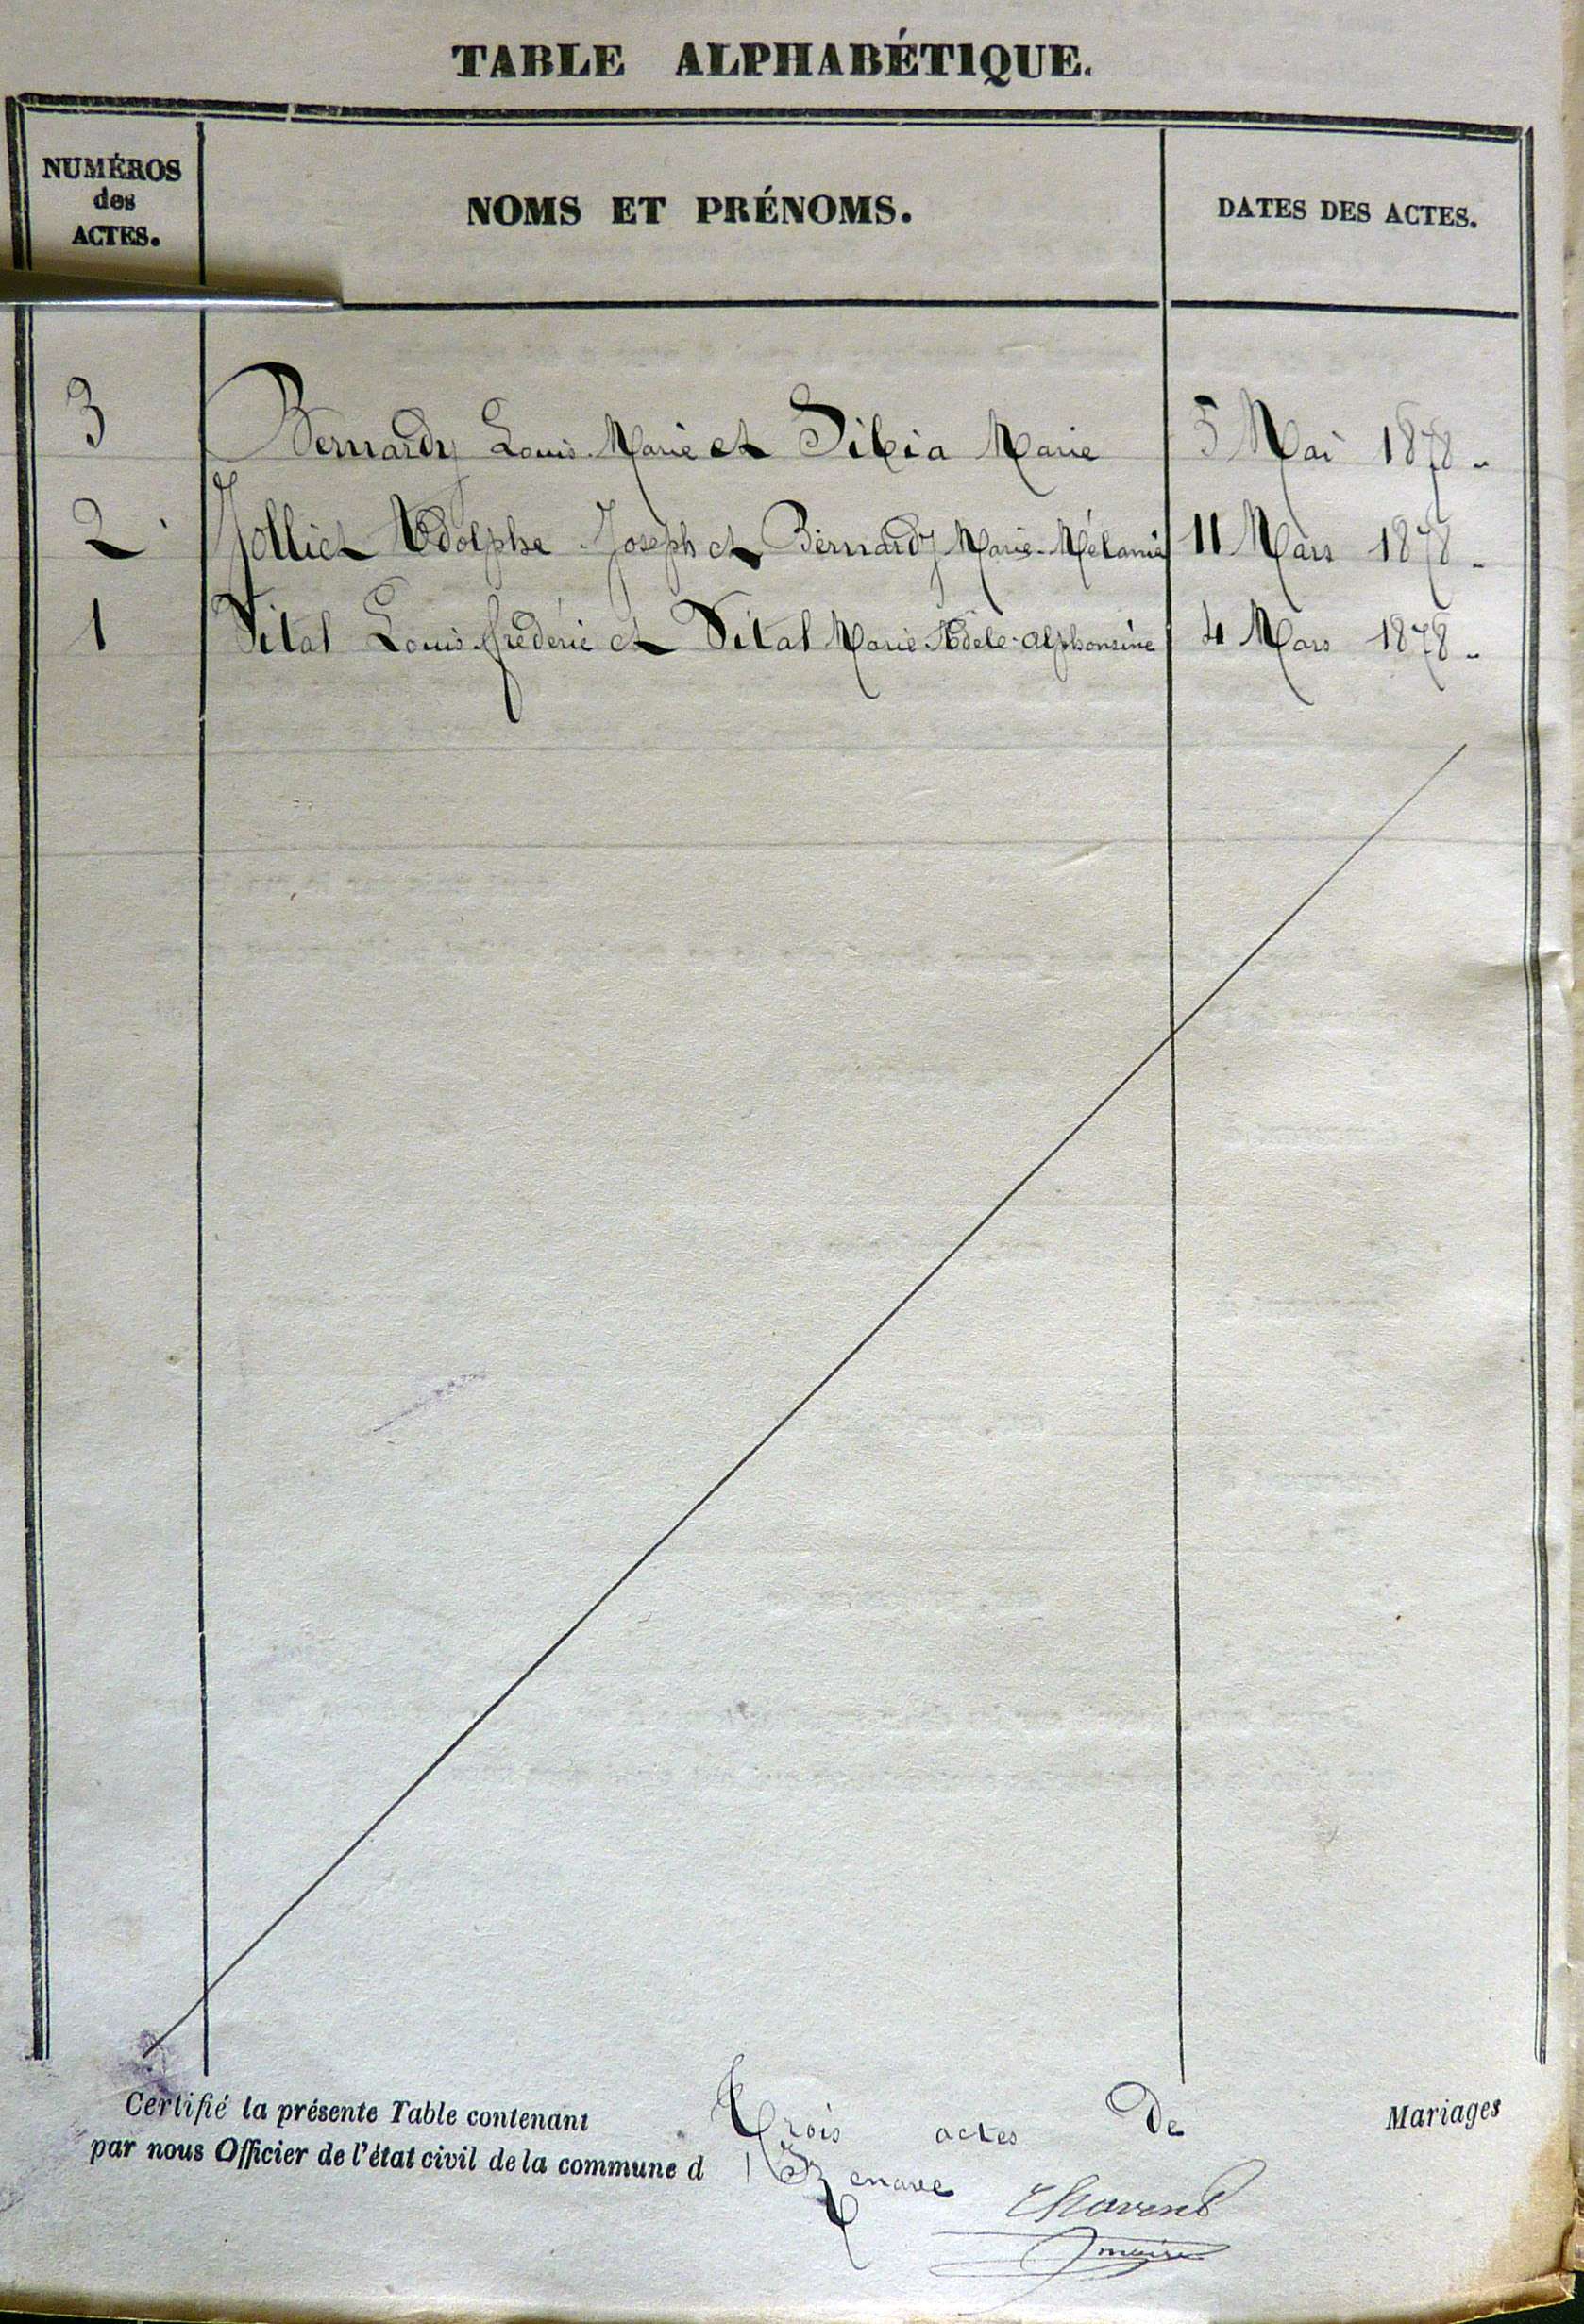 TABLE ALPHABÉTIQUE.
NUMÉROS
des
ACTES.
NOMS ET PRÉNOMS.
DATES DES ACTES.
3 Bernardy Louis-Marie et Marie 5 Mai 1878
2 Jolliet Adolphe Joseph et Bernardy Marie-Mélanie 11 Mars 1878
1 Vital Louis-frédéric et Vital Marie-Adele-alphonsine 4 Mars 1878
Certifié la présente Table contenant Trois actes De Mariages
par nous Officier de l'état civil de la commune d' Izenave
maire